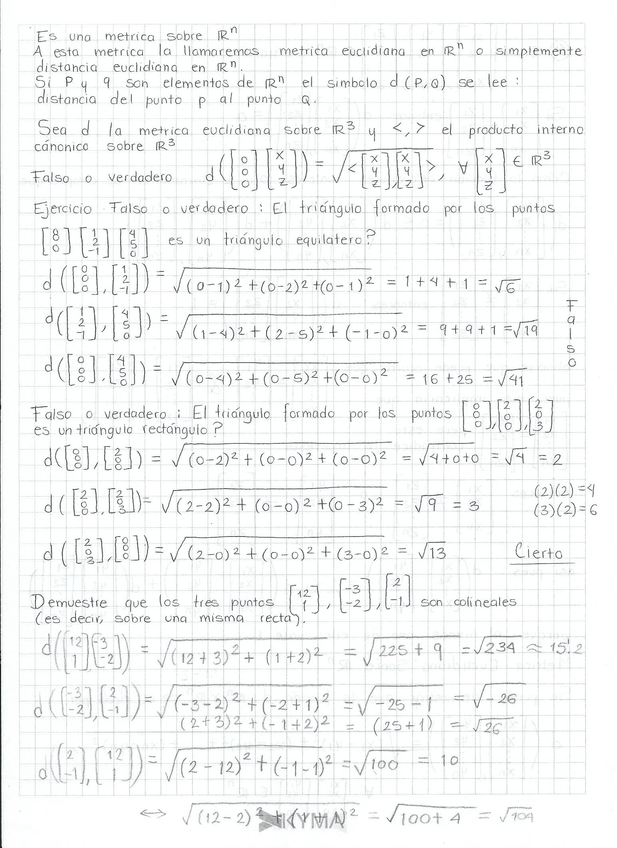 Es una metrica sobre ℝⁿ
A esta metrica la llamaremos metrica euclidiana en ℝⁿ o simplemente
distancia euclidiana en ℝⁿ.
Si P y q son elementos de ℝⁿ el simbolo d (P,Q) se lee :
distancia del punto p al punto Q.
Sea d la metrica euclidiana sobre ℝ³ y <,> el producto interno
cánonico sobre ℝ³
Falso o verdadero d([0 0 0][x y z]) = √<[x y z],[x y z]>, ∀ [x y z] ∈ ℝ³
Ejercicio Falso o verdadero : El triángulo formado por los puntos
[0 0 0] [1 2 -1] [4 5 0] es un triángulo equilatero?
d([0 0 0],[1 2 -1]) = √(0-1)² + (0-2)² + (0-1)² = 1+4+1 = √6
d([1 2 -1],[4 5 0]) = √(1-4)² + (2-5)² + (-1-0)² = 9+9+1 = √19
d([0 0 0],[4 5 0]) = √(0-4)² + (0-5)² + (0-0)² = 16+25 = √41
Falso
Falso o verdadero : El triángulo formado por los puntos [0 0 0],[2 0 0],[2 0 3]
es un triángulo rectángulo?
d([0 0 0],[2 0 0]) = √(0-2)² + (0-0)² + (0-0)² = √4+0+0 = √4 = 2
d([2 0 0],[2 0 3]) = √(2-2)² + (0-0)² + (0-3)² = √9 = 3
(2)(2) = 4
(3)(2) = 6
d([2 0 3],[0 0 0]) = √(2-0)² + (0-0)² + (3-0)² = √13 Cierto
Demuestre que los tres puntos [12 1], [-3 -2], [2 -1] son colineales
(es decir, sobre una misma recta).
d([12 1][-3 -2]) = √(12+3)² + (1+2)² = √225+9 = √234 ≈ 15'2
d([-3 -2],[2 -1]) = √(-3-2)² + (-2+1)² = √-25-1 = √-26
(2+3)² + (-1+2)² = (25+1) = √26
d([2 -1],[12 1]) = √(2-12)² + (-1-1)² = √100 = 10
⇔ √(12-2)² + (1+1)² = √100+4 = √104
KYMA